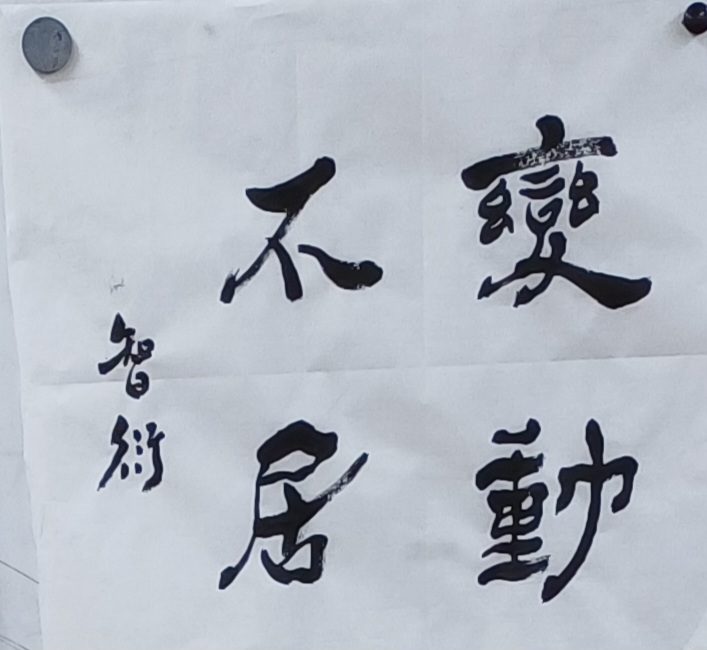 變動
不居
智衍